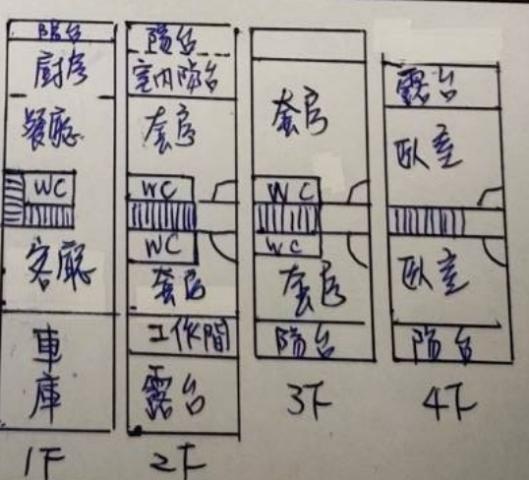 陽台
廚房
餐廳
WC
客廳
車庫
1F
陽台
室內陽台
套房
WC
WC
套房
工作間
露台
2F
套房
WC
WC
套房
陽台
3F
露台
臥室
臥室
陽台
4F